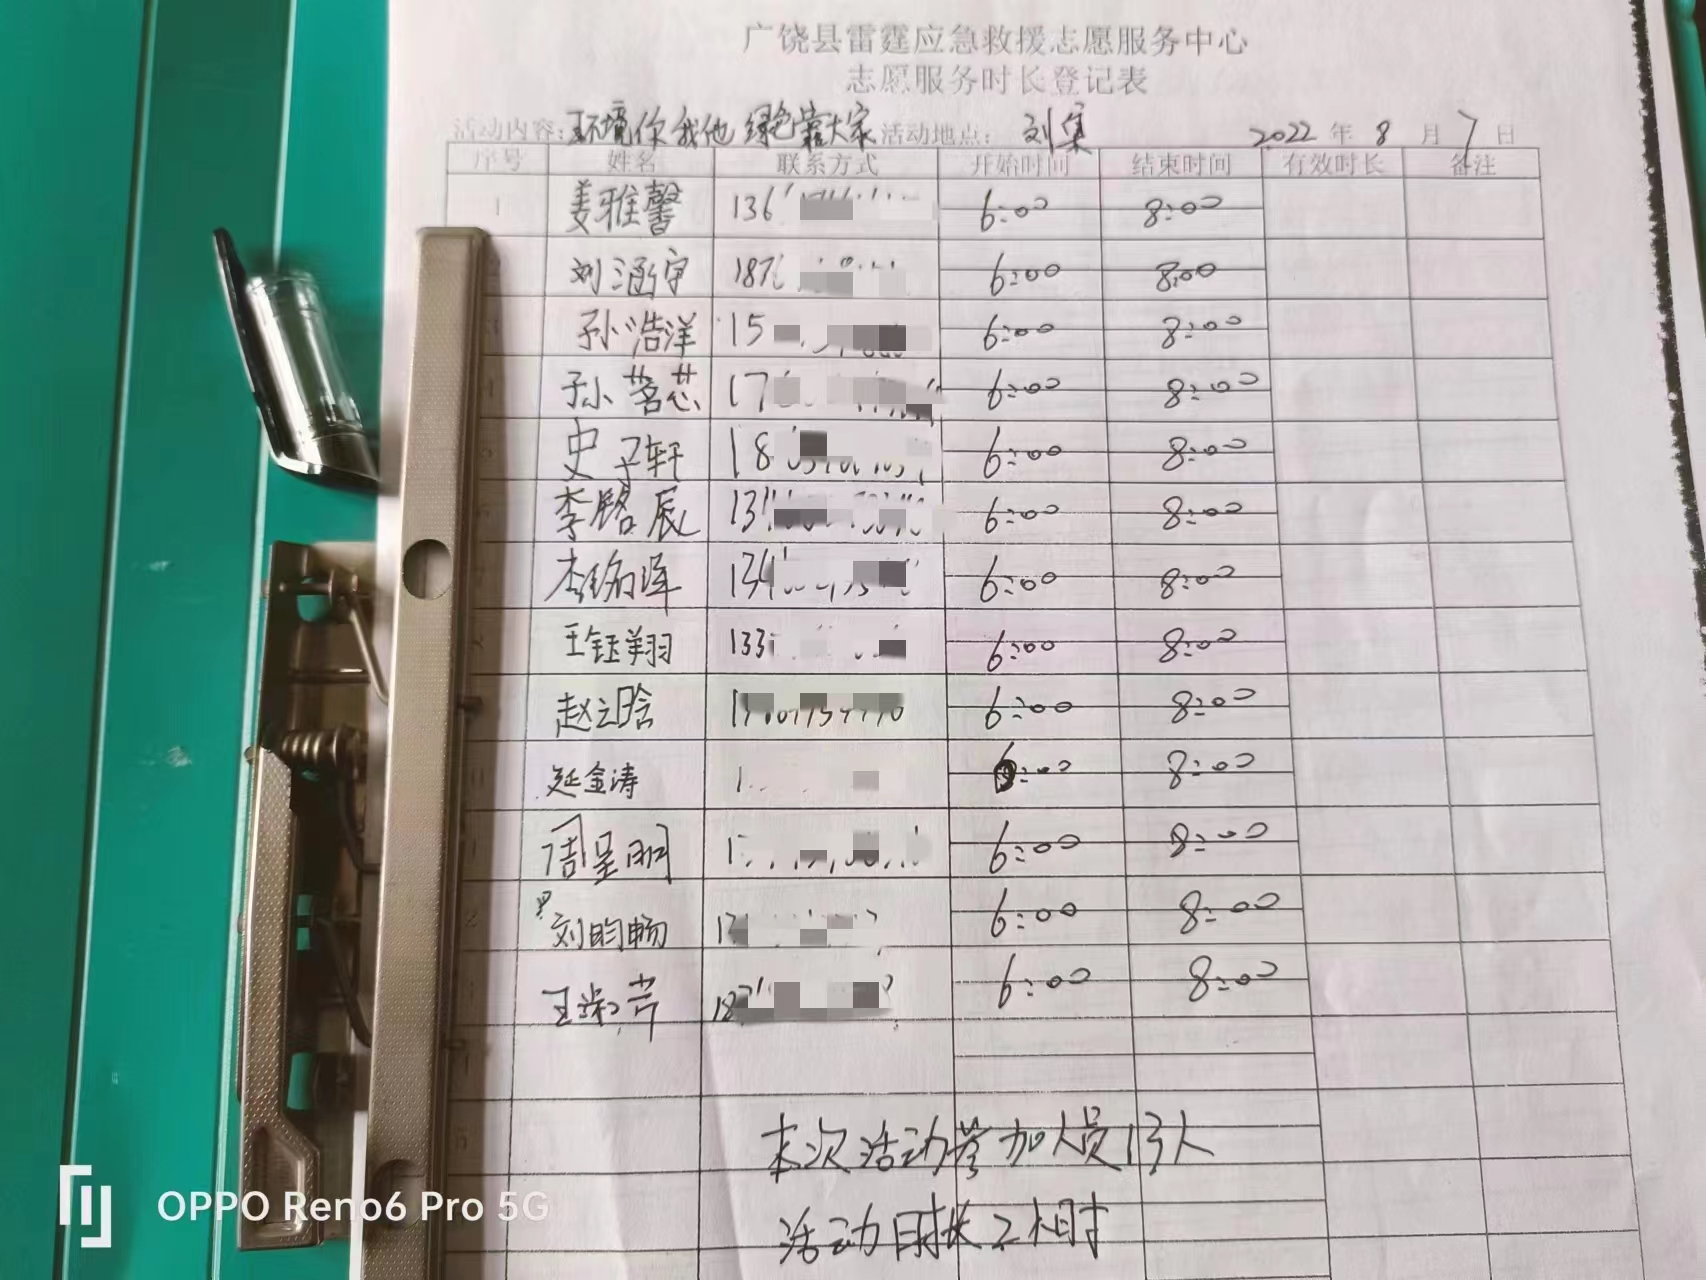 广饶县雷霆应急救援志愿服务中心
志愿服务时长登记表
活动内容：环境你我他 绿色靠大家 活动地点： 刘集 2022 年 8 月 7 日
序号 姓名 联系方式 开始时间 结束时间 有效时长 备注
1 姜雅馨 136 6:00 8:00
2 刘涵宇 187 6:00 8:00
3 孙浩洋 15 6:00 8:00
4 孙茗芯 17 6:00 8:00
5 史子轩 18 6:00 8:00
6 李铭辰 13 6:00 8:00
李 134 6:00 8:00
王钰翔 133 6:00 8:00
赵云晗 1 6:00 8:00
延金涛 1 6:00 8:00
周呈明 1 6:00 8:00
刘昀畅 6:00 8:00
王 18 6:00 8:00
本次活动参加人员13人
活动时长2小时
OPPO Reno6 Pro 5G